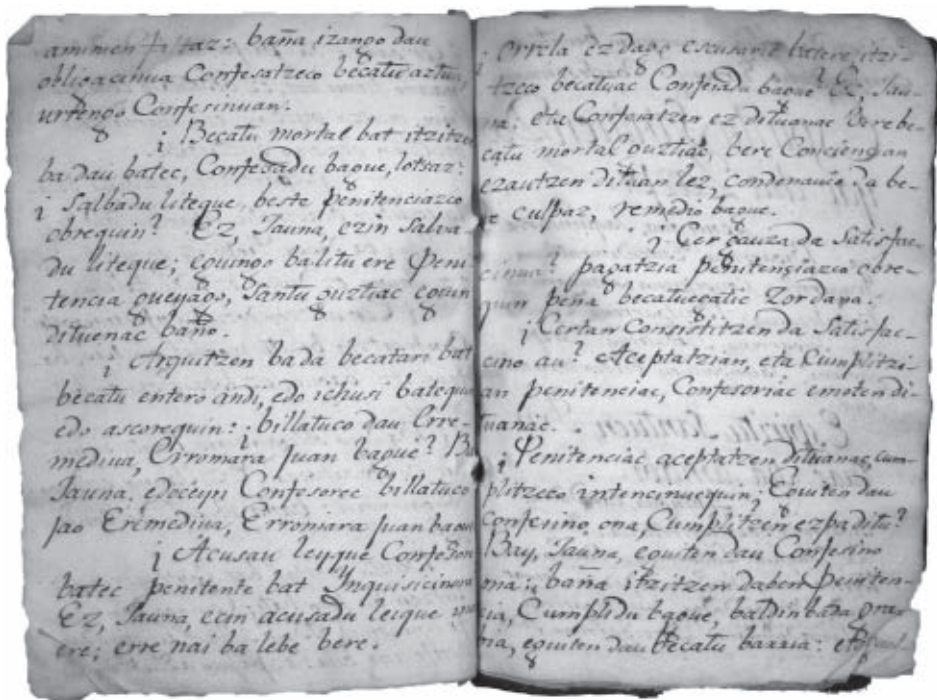 amimen + taz: baña izango dau
obligacinua Confesatzeco becatu aztua,
urtengo Confesinuan.
¡ Becatu mortal bat itzitze
ba dau batec, Confesadu bague, lotsaz:
¡ Salbadu liteque, beste penitenziazco
obrequin? Ez, Jauna, ezin salva
du liteque; eguingo balitu ere Peni
tencia gueyago, Santu guztiac eguin
dituenac baño.
¡ Arquitzen bada becatari bat
becatu entero andi, edo ichusi batequin
edo ascorequin: billatuco dau Erre-
mediua, Erromara juan bague? Ba
Jauna, edoceyn Confesorec billatuco
jao Erremediua, Erromara juan bague
¡ Acusau leyque Confesore
batec penitente bat Inquisicinora
Ez, Jauna, ecin acusadu leique
ere; erre nai ba lebe bere.
¡ Orrela ez dago escusaric batere, itzi-
tzeco becatuac Confesadu bague? Ez Jau-
na: eta Confesatzen ez dituanac bere be-
catu mortal guztiac, bere Concienzian
ezautzen dituan lez, condenauco da be-
re culpaz, remedio bague.
¡ Cer gauza da Satisfac-
cinua? pagatzia penitenziazco obre-
quin pena becatuegatic zor dana.
¡ Certan Consistitzen da Satisfac-
cino au? Aceptatzian, eta Cumplitzi-
an penitenciac, Confesoriac emoten di-
tuanac.
¡ Penitenciac aceptatzen dituanac, cum-
plitzeco intencinuequin; Eguiten dau
confesino ona, Cumplitzen ezpaditu?
Bay, Jauna, eguiten dau Confesino
ona: baña itzitzen daben peniten-
cia, Cumplidu bague, baldin bada gra-
via, eguiten dau becatu barria: eta